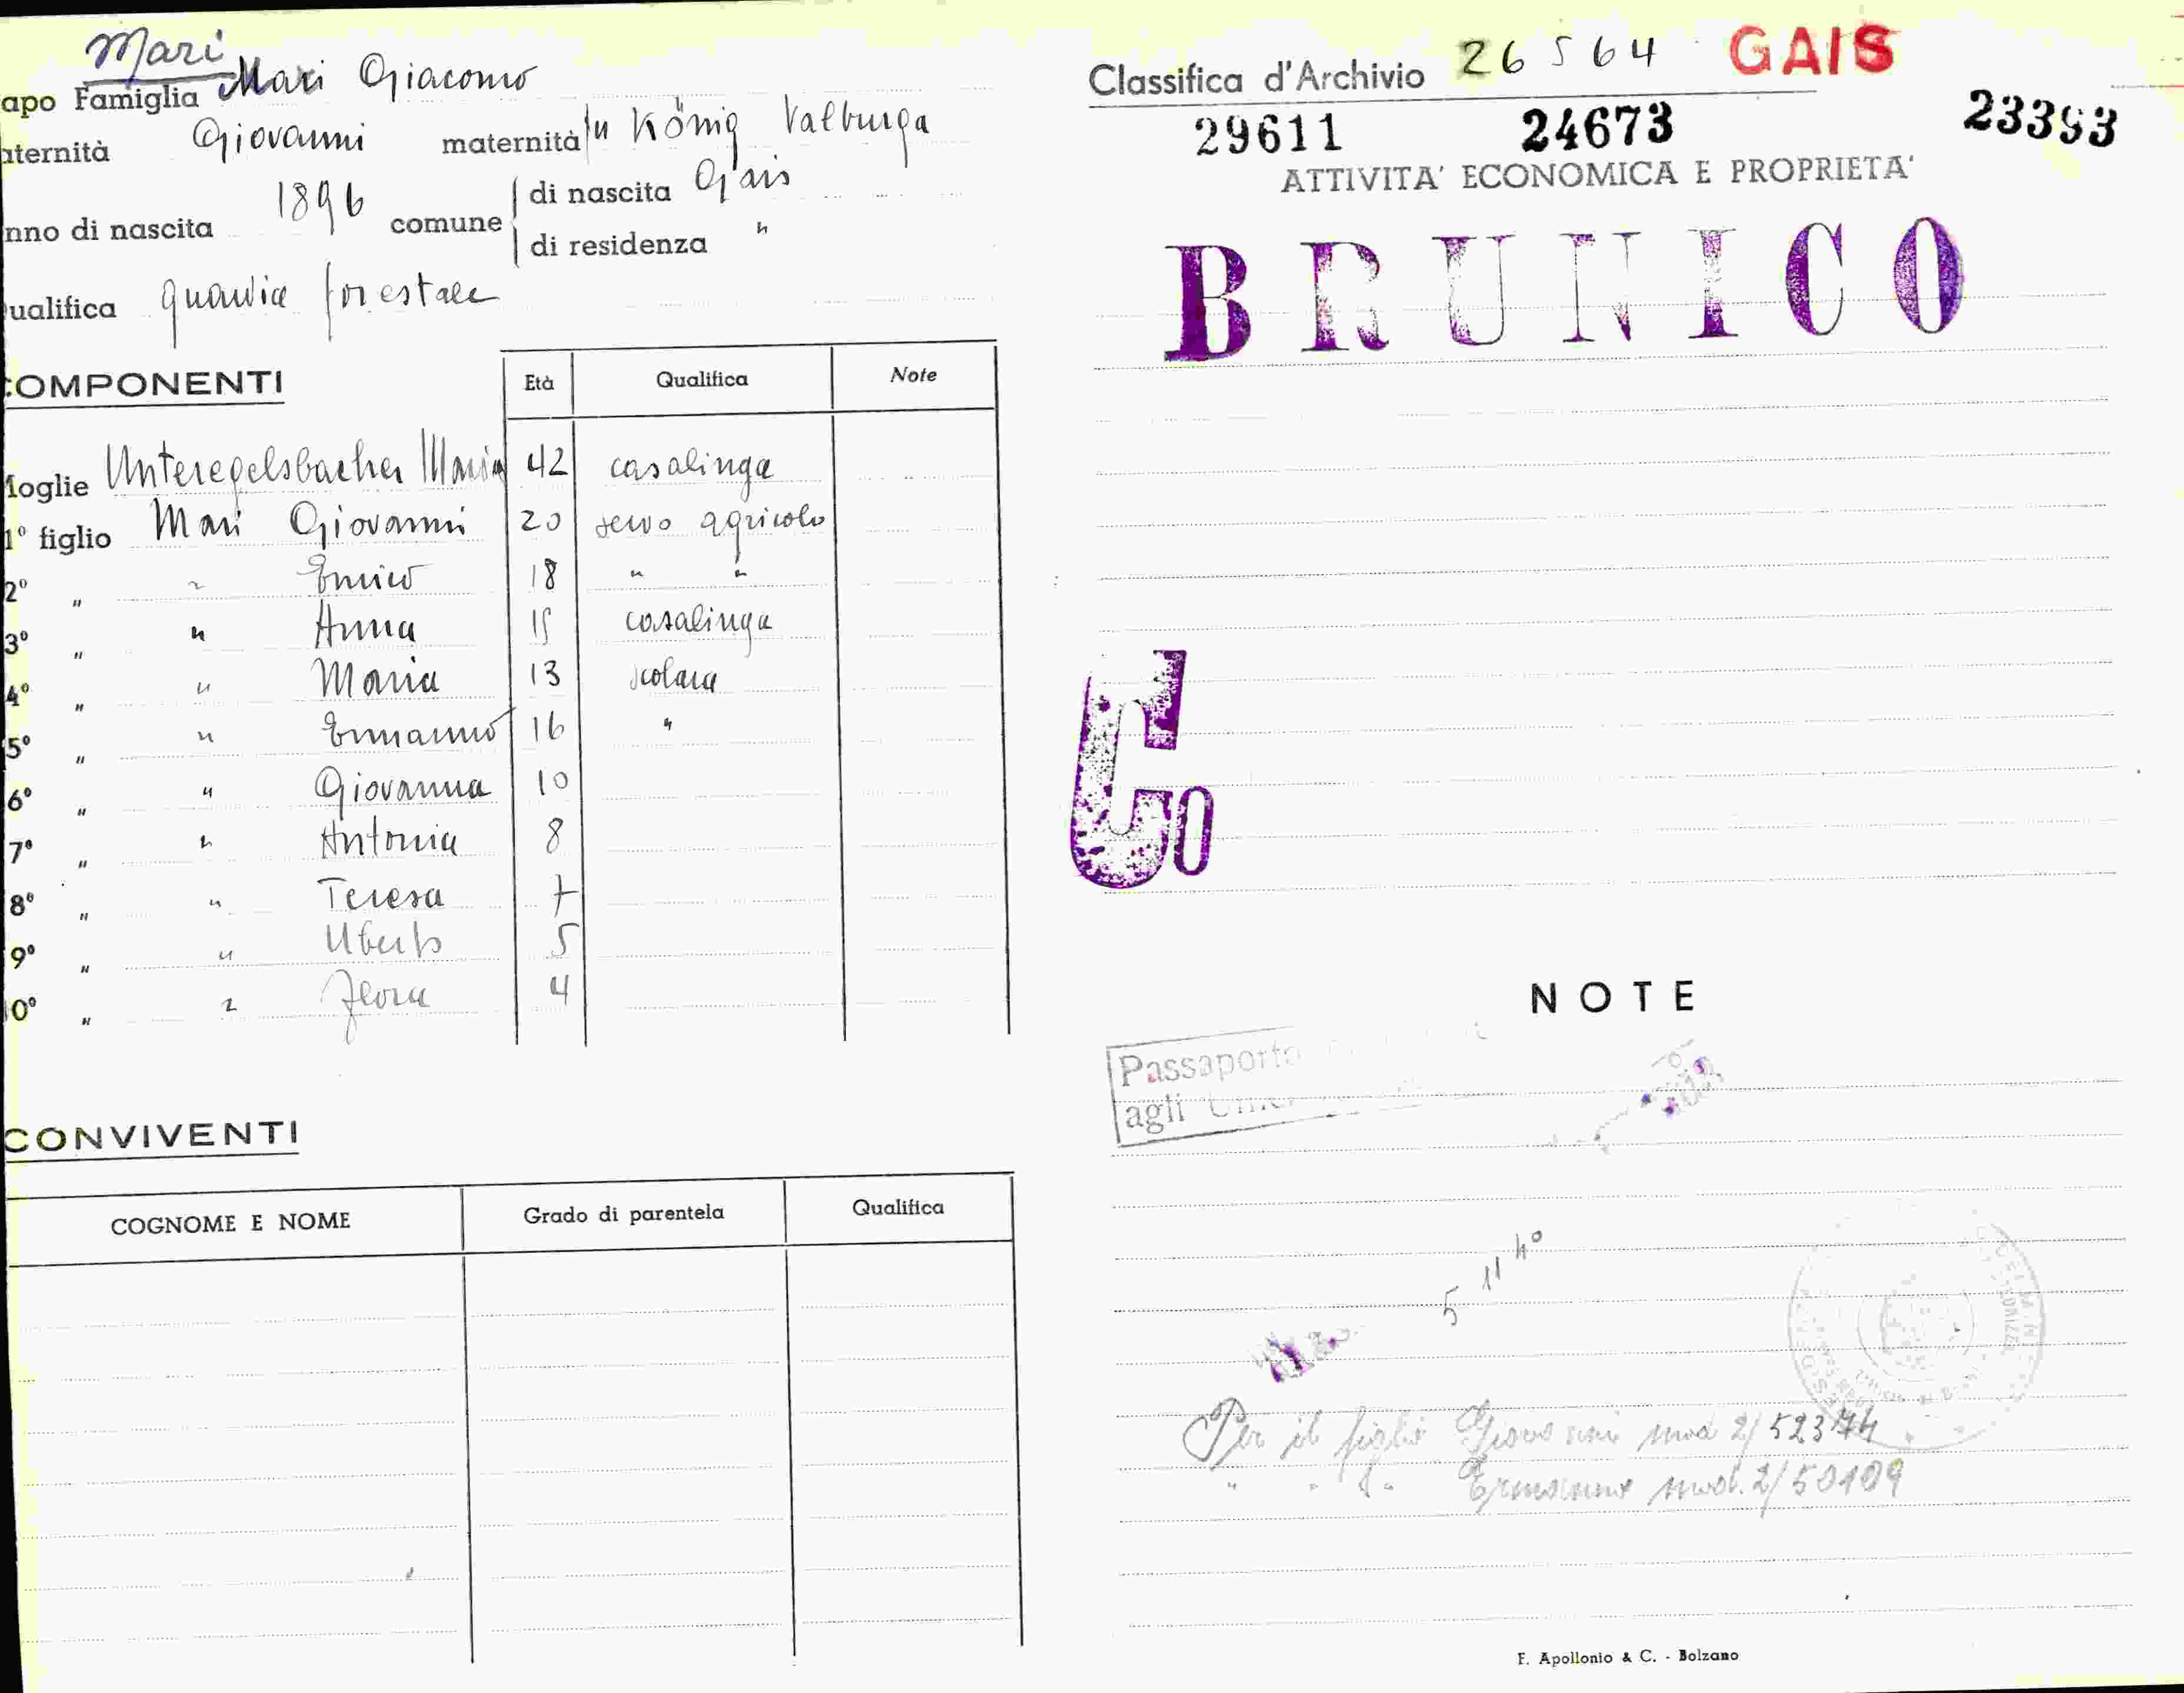 Mari
apo Famiglia Mari Giacomo
aternità Giovanni maternità fu König Valburga
nno di nascita 1896 comune di nascita Gais
di residenza "
ualifica guardia forestale
COMPONENTI Età Qualifica Note
Moglie Unteregelsbacher Maria 42 casalinga
1° figlio Mari Giovanni 20 servo agricolo
2° " " Enrico 18 " "
3° " " Anna 15 casalinga
4° " " Maria 13 scolara
5° " " Ermanno 16 "
6° " " Giovanna 10
7° " " Antonia 8
8° " " Teresa 7
9° " " Uberto 5
10° " " Flora 4
CONVIVENTI
COGNOME E NOME Grado di parentela Qualifica
Classifica d'Archivio 26564 GAIS
29611 24673 23393
ATTIVITA' ECONOMICA E PROPRIETA'
BRUNICO
Co
NOTE
Passaporto
agli
5 11 40
Per il figlio Giovanni mod 2/52374
" " " Ermanno mod. 2/50109
F. Apollonio & C. - Bolzano